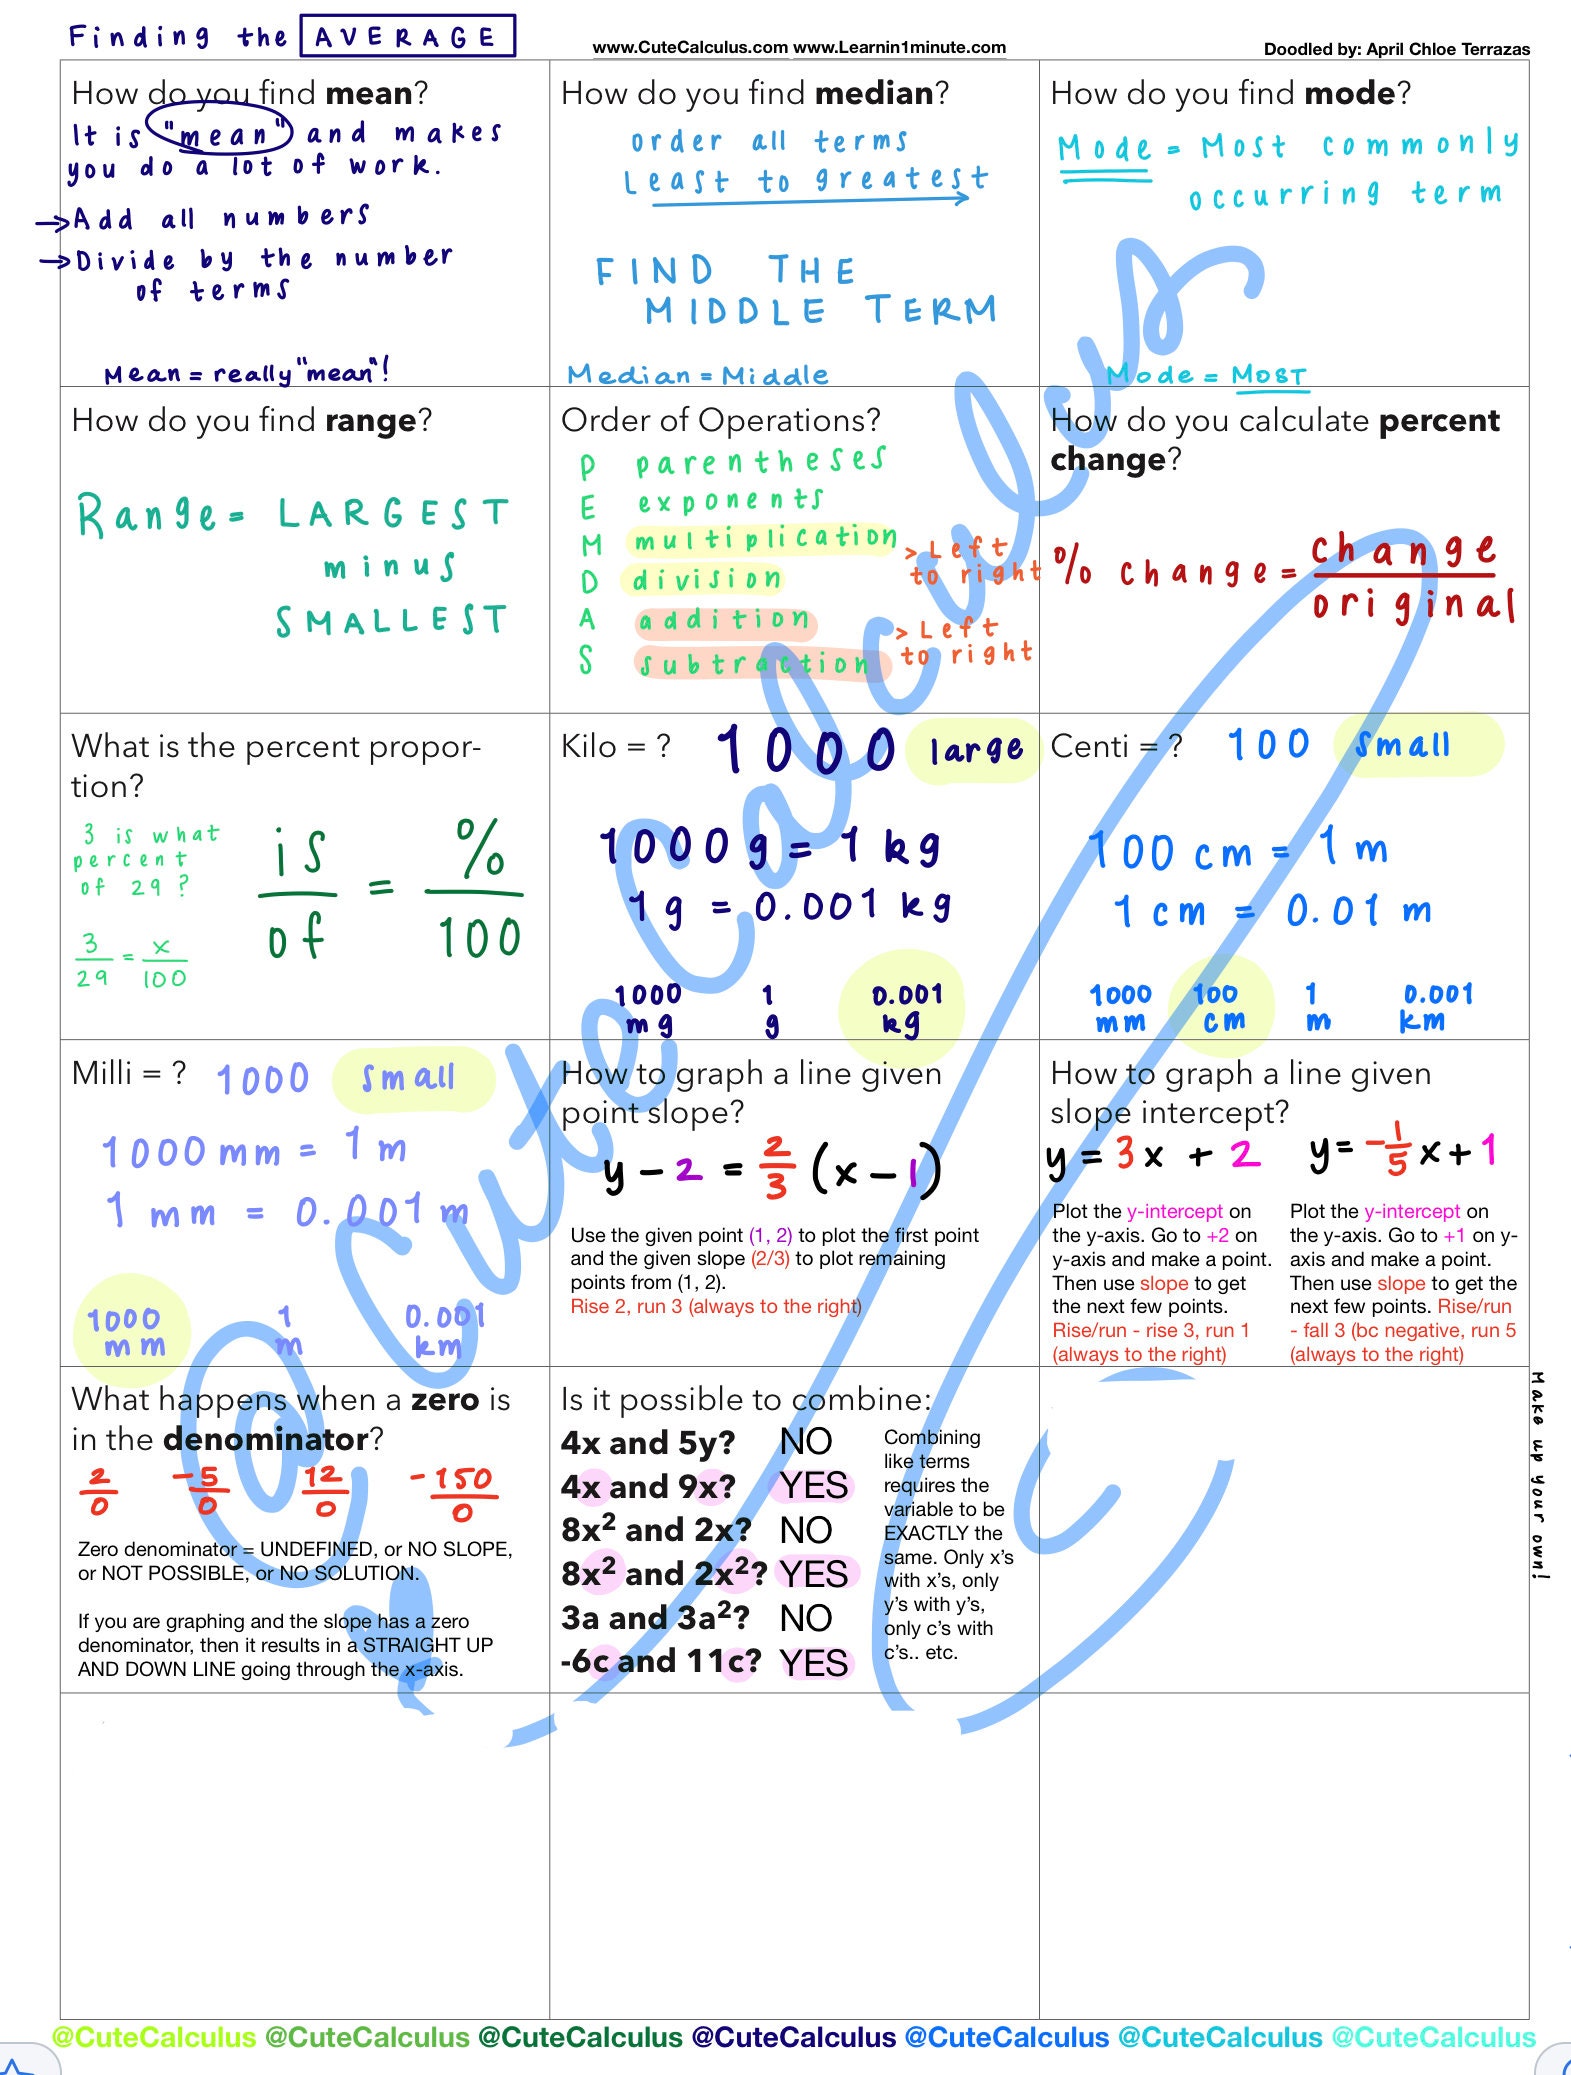 Finding the AVERAGE
www.CuteCalculus.com www.Learnin1minute.com
Doodled by: April Chloe Terrazas
How do you find mean?
It is "mean" and makes
you do a lot of work.
→ Add all numbers
→ Divide by the number
of terms
Mean = really "mean"!
How do you find median?
order all terms
Least to greatest
FIND THE
MIDDLE TERM
Median = Middle
How do you find mode?
Mode = Most commonly
occurring term
Mode = MOST
How do you find range?
Range = LARGEST
minus
SMALLEST
Order of Operations?
P parentheses
E exponents
M multiplication
D division
> Left
to right
A addition
S subtraction
> Left
to right
How do you calculate percent
change?
% change = change/original
What is the percent propor-
tion?
3 is what
percent
of 29?
3/29 = x/100
is/of = %/100
Kilo = ? 1000 large
1000 g = 1 kg
1 g = 0.001 kg
1000 1 0.001
mg g kg
Centi = ? 100 small
100 cm = 1 m
1 cm = 0.01 m
1000 100 1 0.001
mm cm m km
Milli = ? 1000 small
1000 mm = 1 m
1 mm = 0.001 m
1000 1 0.001
mm m km
How to graph a line given
point slope?
y - 2 = 2/3 (x - 1)
Use the given point (1, 2) to plot the first point
and the given slope (2/3) to plot remaining
points from (1, 2).
Rise 2, run 3 (always to the right)
How to graph a line given
slope intercept?
y = 3x + 2
Plot the y-intercept on
the y-axis. Go to +2 on
y-axis and make a point.
Then use slope to get
the next few points.
Rise/run - rise 3, run 1
(always to the right)
y = -1/5 x + 1
Plot the y-intercept on
the y-axis. Go to +1 on y-
axis and make a point.
Then use slope to get the
next few points. Rise/run
- fall 3 (bc negative, run 5
(always to the right)
What happens when a zero is
in the denominator?
2/0 -5/0 12/0 -150/0
Zero denominator = UNDEFINED, or NO SLOPE,
or NOT POSSIBLE, or NO SOLUTION.
If you are graphing and the slope has a zero
denominator, then it results in a STRAIGHT UP
AND DOWN LINE going through the x-axis.
Is it possible to combine:
4x and 5y? NO
4x and 9x? YES
8x² and 2x? NO
8x² and 2x²? YES
3a and 3a²? NO
-6c and 11c? YES
Combining
like terms
requires the
variable to be
EXACTLY the
same. Only x's
with x's, only
y's with y's,
only c's with
c's.. etc.
Make up your own!
@CuteCalculus
@CuteCalculus @CuteCalculus @CuteCalculus @CuteCalculus @CuteCalculus @CuteCalculus @CuteCalculus